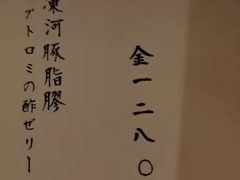 金一二八〇
凍河豚脂膠
グトロミの酢ゼリー